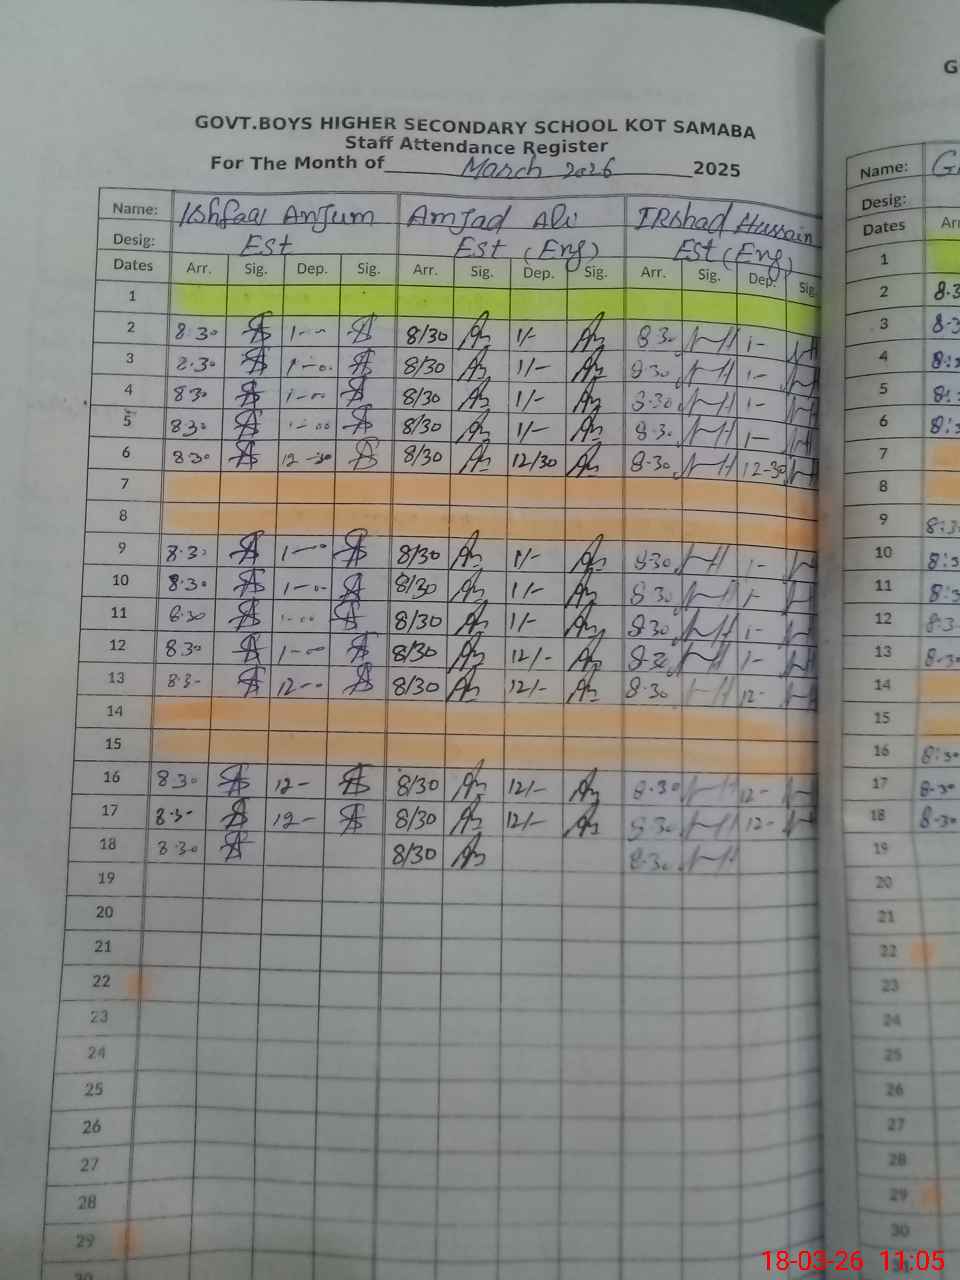 GOVT.BOYS HIGHER SECONDARY SCHOOL KOT SAMABA
Staff Attendance Register
For The Month of March 2026 2025
Name: Ishfaq Anjum Amjad Ali IRshad Hussain
Desig: Est Est (Eng) Est (Eng)
Dates Arr. Sig. Dep. Sig. Arr. Sig. Dep. Sig. Arr. Sig. Dep. Sig.
1
2 8.30 1-00 8/30 1/- 8.30 1-
3 8.30 1-00 8/30 1/- 8.30 1-
4 8.30 1-00 8/30 1/- 8.30 1-
5 8.30 1-00 8/30 1/- 8.30 1-
6 8.30 12-30 8/30 12/30 8.30 12-30
7
8
9 8.30 1-00 8/30 1/- 8.30 1-
10 8.30 1-00 8/30 1/- 8.30 1-
11 8.30 1-00 8/30 1/- 8.30 1-
12 8.30 1-00 8/30 12/- 8.30 1-
13 8.3- 12-0 8/30 12/- 8.30 12-
14
15
16 8.30 12- 8/30 12/- 8.30 12-
17 8.3- 12- 8/30 12/- 8.30 12-
18 8.30 8/30 8.30
19
20
21
22
23
24
25
26
27
28
29
30
G
Name:
Desig:
Dates
1
2 8.3
3 8.3
4
5
6
7
8
9 8:3
10 8:3
11 8:3
12 8.3
13 8.30
14
15
16 8:30
17 8.30
18 8.30
19
20
21
22
23
24
25
26
27
28
29
30
31
18-03-26 11:05